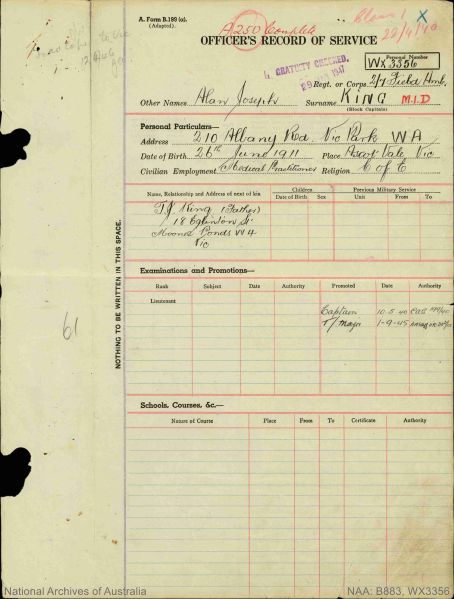 A. Form B.199 (a).
(Adapted).
A250 Complete
Class 1
X
28/4/40
OFFICER'S RECORD OF SERVICE
Personal Number
WX3356
GRATUITY CHECKED.
1947
Regt. or Corps 2/7 Field Amb.
Other Names Alan Joseph Surname KING M.I.D
(Block Capitals)
Personal Particulars—
Address 210 Albany Rd. Vic Park WA
Date of Birth 26th June 1911 Place Ascot Vale, Vic
Civilian Employment Medical Practitioner Religion C of E
Name, Relationship and Address of next of kin Children Previous Military Service
Date of Birth Sex Unit From To
T J King (Father)
18 Eglinton St
Moonee Ponds W4
Vic
Examinations and Promotions—
Rank Subject Date Authority Promoted Date Authority
Lieutenant
Captain 10.5.40
T/Major 1-9-45
Schools, Courses, &c.—
Nature of Course Place From To Certificate Authority
NOTHING TO BE WRITTEN IN THIS SPACE.
61
National Archives of Australia
NAA: B883, WX3356